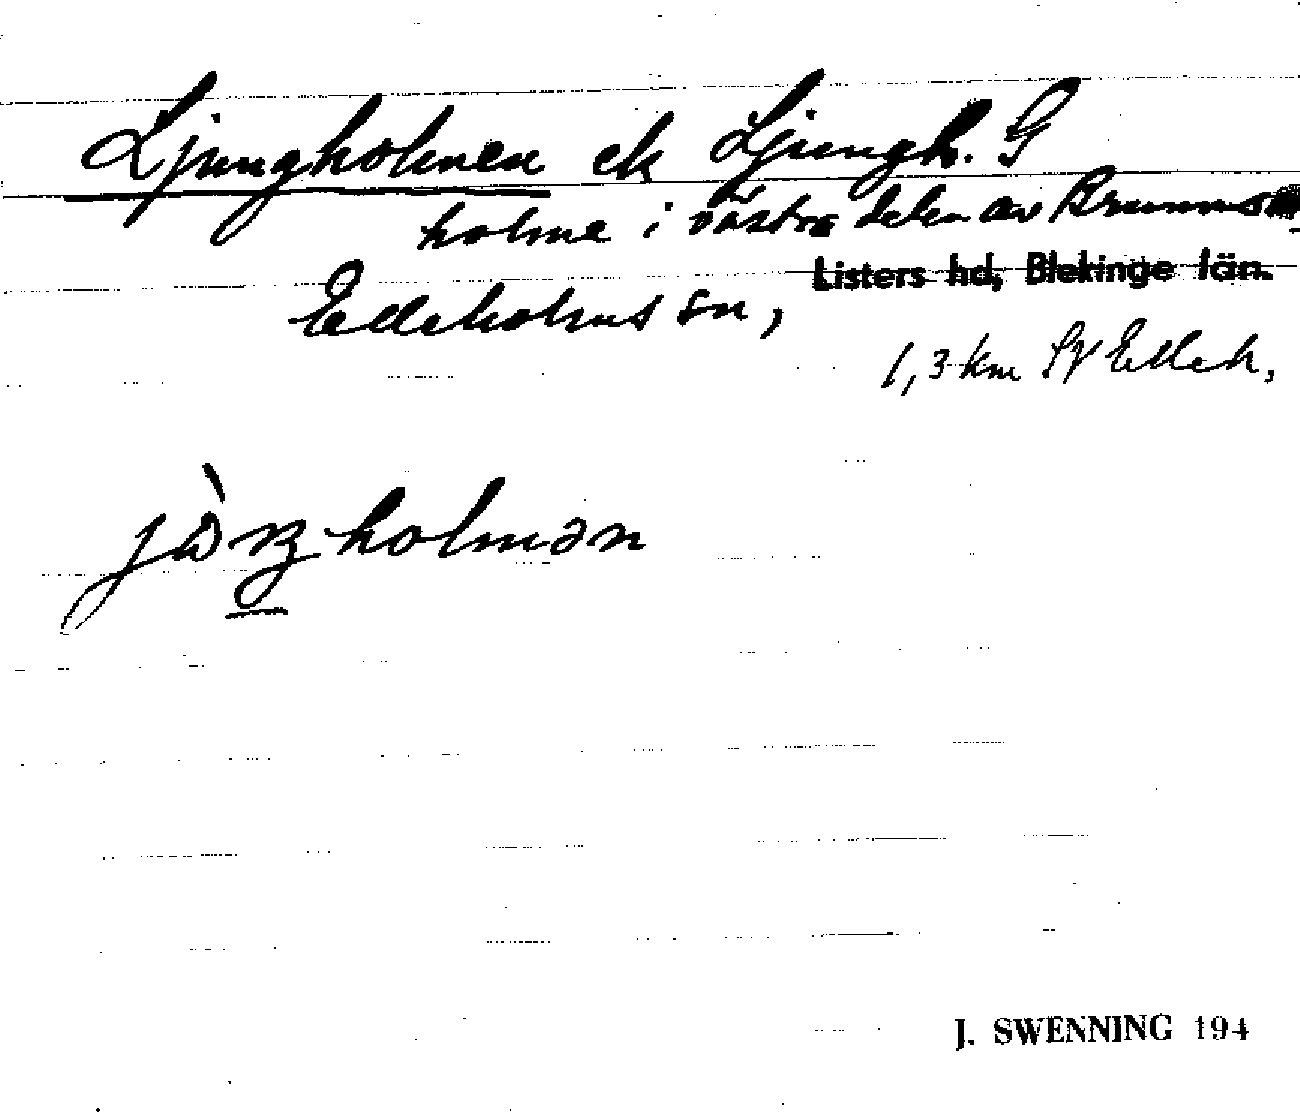 Ljungholmen ek Ljungh. G
holme i västra delen av
Elleholms sn,
Listers hd, Blekinge län.
1,3 km SV Elleh,
holmən
J. SWENNING 194